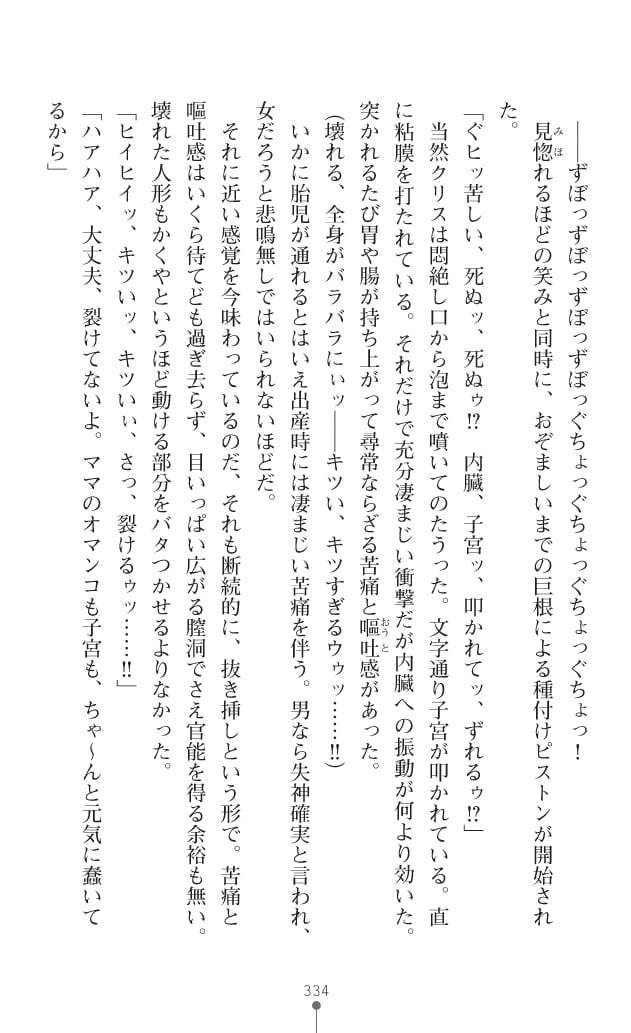 ――ずぼっずぼっずぼっずぼっぐちょっぐちょっぐちょっぐちょっ！
見惚れるほどの笑みと同時に、おぞましいまでの巨根による種付けピストンが開始され
た。
「ぐヒッ苦しい、死ぬッ、死ぬゥ!?　内臓、子宮ッ、叩かれてッ、ずれるゥ!?」
当然クリスは悶絶し口から泡まで噴いてのたうった。文字通り子宮が叩かれている。直
に粘膜を打たれている。それだけで充分凄まじい衝撃だが内臓への振動が何より効いた。
突かれるたび胃や腸が持ち上がって尋常ならざる苦痛と嘔吐感があった。
（壊れる、全身がバラバラにぃッ――キツい、キツすぎるウゥッ……!!）
いかに胎児が通れるとはいえ出産時には凄まじい苦痛を伴う。男なら失神確実と言われ、
女だろうと悲鳴無しではいられないほどだ。
それに近い感覚を今味わっているのだ、それも断続的に、抜き挿しという形で。苦痛と
嘔吐感はいくら待てども過ぎ去らず、目いっぱい広がる膣洞でさえ官能を得る余裕も無い。
壊れた人形もかくやというほど動ける部分をバタつかせるよりなかった。
「ヒイヒイッ、キツいッ、キツいぃ、さっ、裂けるゥッ……!!」
「ハアハア、大丈夫、裂けてないよ。ママのオマンコも子宮も、ちゃ～んと元気に蠢いて
るから」
334